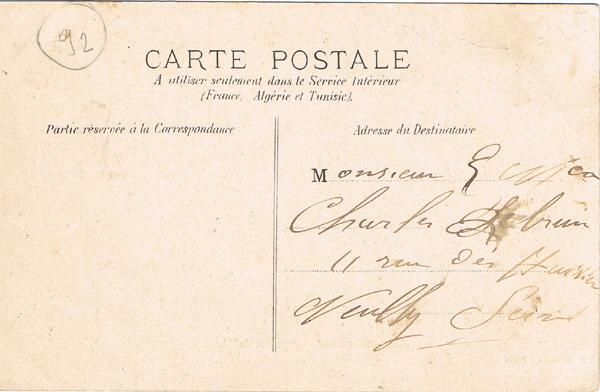 92
CARTE POSTALE
A utiliser seulement dans le Service Intérieur
(France, Algérie et Tunisie).
Partie réservée à la Correspondance
Adresse du Destinataire
Monsieur
Charles Lebrun
11 rue des
Neuilly Seine